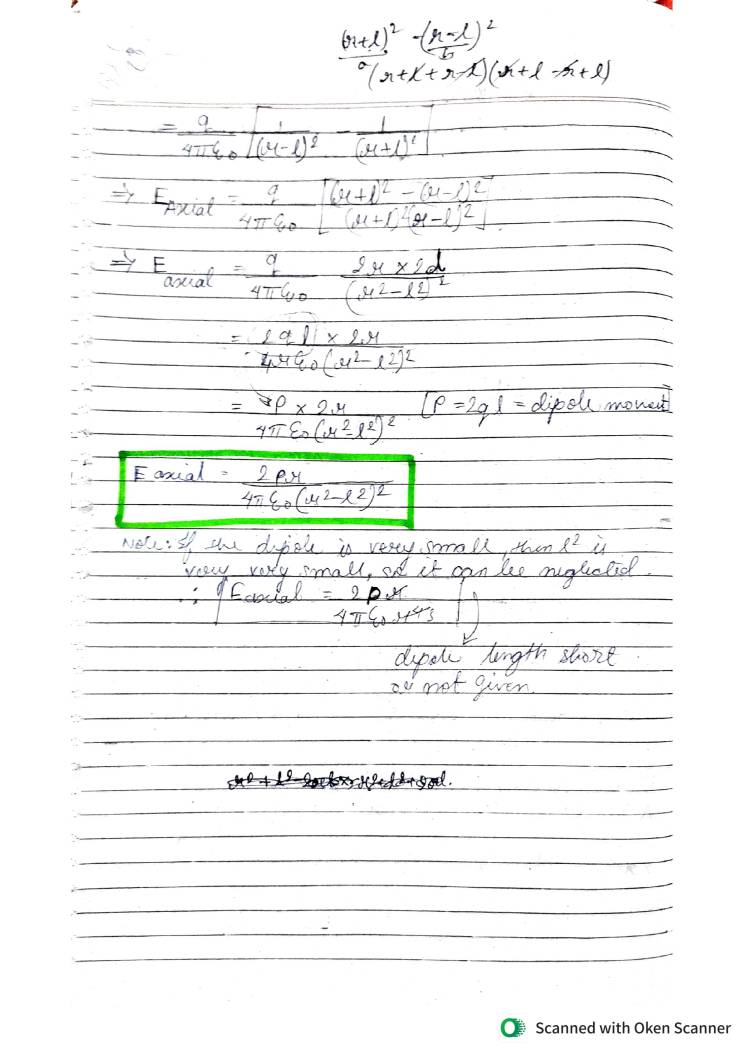 (r+l)² - (r-l)²
(r+l+r-l)(r+l-r+l)
= q/4πε₀ [1/(r-l)² - 1/(r+l)²]
⇒ E Axial = q/4πε₀ [(r+l)² - (r-l)² / (r+l)²(r-l)²]
⇒ E axial = q/4πε₀ 2r × 2l / (r²-l²)²
= (2ql) × 2r / 4πε₀(r²-l²)²
= P × 2r / 4πε₀(r²-l²)² [P = 2ql = dipole moment]
E axial = 2pr / 4πε₀(r²-l²)²
Note: If the dipole is very small, then l² is
very very small, so it can be neglected.
∴ E axial = 2pr / 4πε₀r⁴3
dipole length short
or not given.
Scanned with Oken Scanner